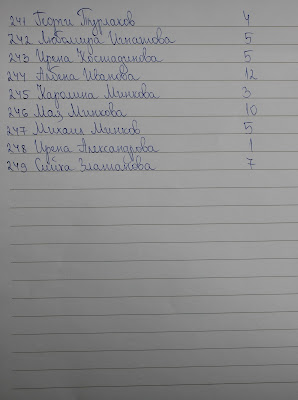 241 Георги Турлаков 4
242 Любомира Игнатова 5
243 Ирена Костадинова 5
244 Албена Иванова 12
245 Каролина Минкова 3
246 Мая Минкова 10
247 Михаил Минков 5
248 Ирена Александрова 1
249 Златанова 7